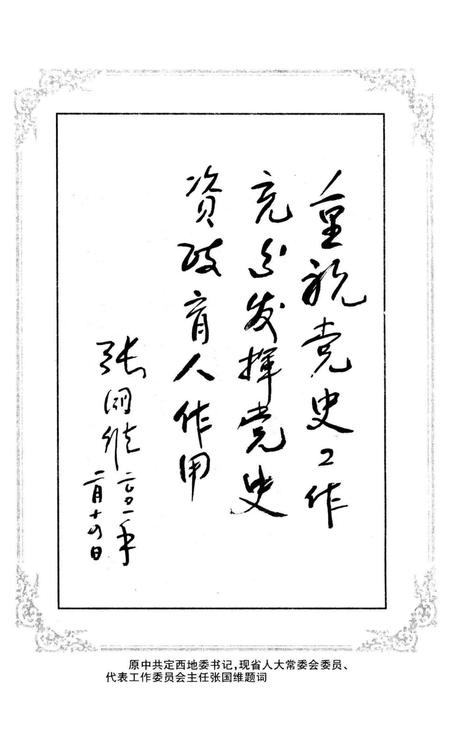 重视党史工作
充分发挥党史
资政育人作用
张国维 二〇〇一年
二月十四日
原中共定西地委书记,现省人大常委会委员、
代表工作委员会主任张国维题词